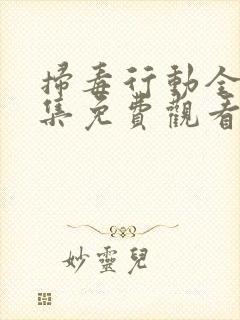 掃毒行動全
集免費觀看
妙靈兒